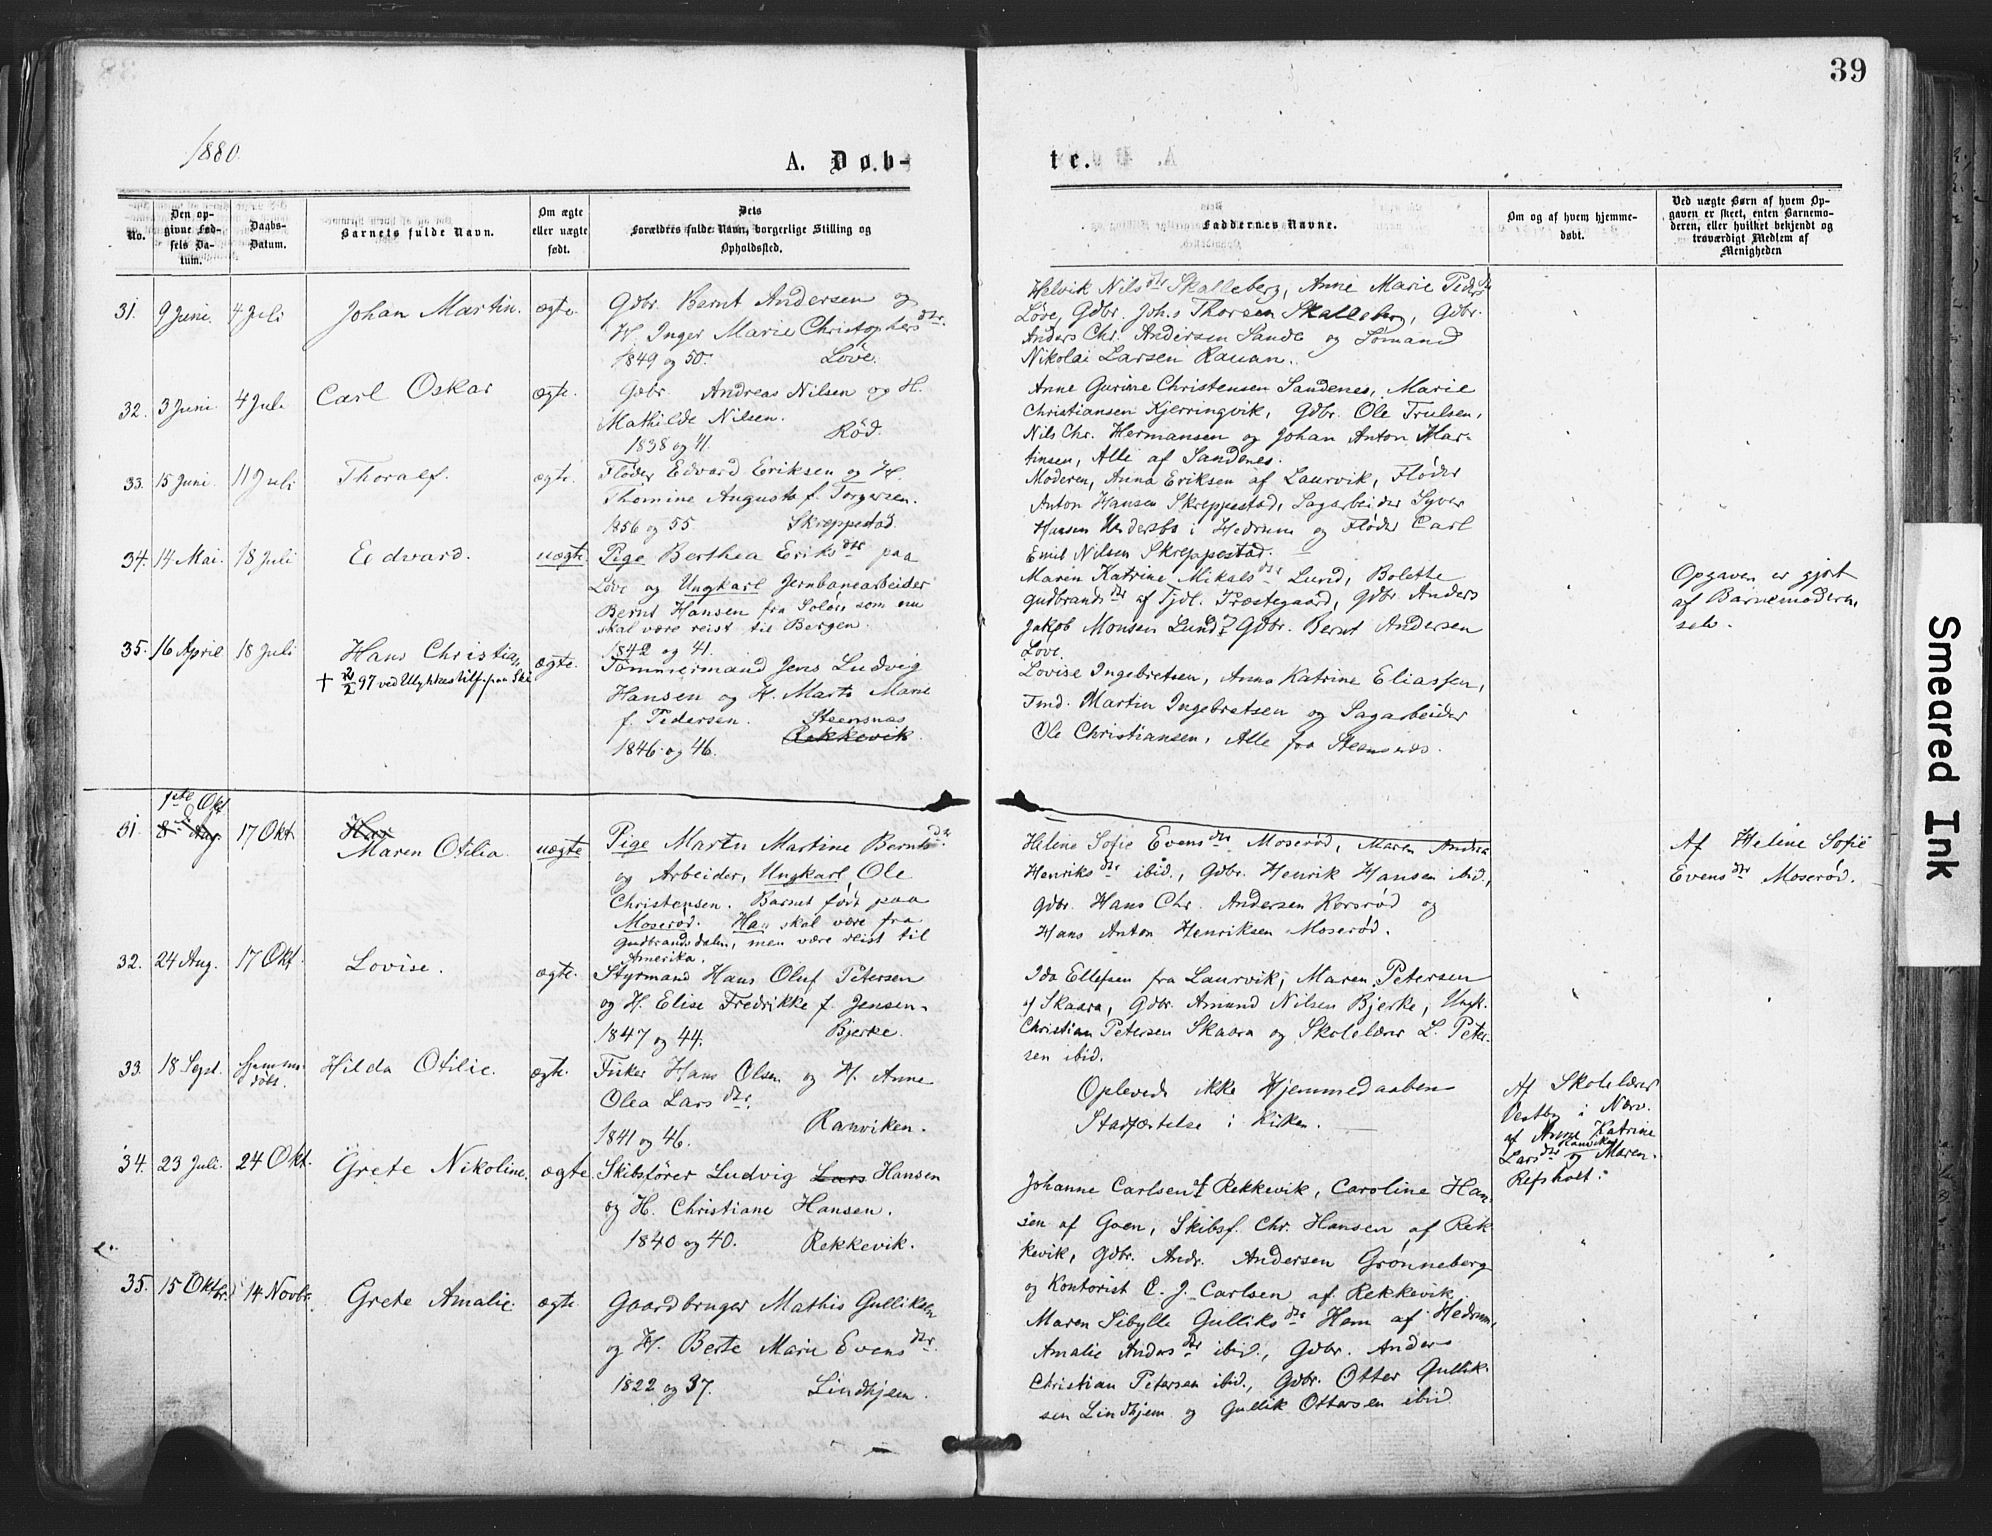 39
1880.
A. Døb-
te.
No.
Den op-
givne Fød-
sels Da-
tum.
Daabs-
Datum.
Barnets fulde Navn.
Om ægte
eller uægte
født.
Dets
Forældres fulde Navn, borgerlige Stilling og
Opholdssted.
Faddernes Navne.
Om og af hvem hjemme-
døbt.
Ved uægte Børn af hvem Op-
gaven er skeet, enten Barnemo-
deren, eller hvilket bekjendt og
troværdigt Medlem af
Menigheden
31. 9 Juni. 4 Juli Johan Martin. ægte.
Gdbr. Bernt Andersen og
H. Inger Marie Christophersdtr.
1849 og 50. Løve.
Helvik Nilsdtr Skalleberg, Anne Marie Pedersdtr
Løve, Gdbr. Johs Thorsen Skalleberg, Gdbr.
Anders Chr. Andersen Sande og Sømand
Nikolai Larsen Rauan.
32. 3 Juni. 4 Juli Carl Oskar ægte.
Gdbr. Andreas Nilsen og H.
Mathilde Nilsen.
1838 og 41. Rød.
Anne Gurine Christensen Sandenes, Marie
Christiansen Kjerringvik, Gdbr. Ole Trulsen,
Nils Chr. Hermansen og Johan Anton Mar-
tinsen, Alle af Sandenes.
33. 15 Juni. 11 Juli Thoralf. ægte.
Fløder Edvard Eriksen og H.
Thomine Augusta f. Torgersen.
1856 og 55 Skreppestad.
Moderen, Anna Eriksen af Laurvik, Fløder
Anton Hansen Skreppestad, Sagarbeider Syver
Hansen Undersbo i Hedrum og Fløder Carl
Emil Nilsen Skreppestad.
34. 14 Mai. 18 Juli Edvard. uægte.
Pige Berthea Eriksdtr paa
Løve og Ungkarl Jernbanearbeider
Bernt Hansen fra Soløer som nu
skal være reist til Bergen.
1842 og 41.
Maren Katrine Mikalsdtr Lund, Bolette
Gudbrandsdtr af Tjdl. Præstegaard, Gdbr Anders
Jakob Monsen Lund, Gdbr. Bernt Andersen
Løve.
Opgaven er gjort
af Barnemoderen
selv.
35. 16 April 18 Juli Hans Christian ægte.
+ 97 ved Ulykkestilf. paa Ski
Tømmermand Jens Ludvig
Hansen og H. Marte Marie
f. Pedersen. Steensnæs
Rekkevik.
1846 og 46.
Lovise Ingebretsen, Anna Katrine Eliassen,
Tmd. Martin Ingebretsen og Sagarbeider
Ole Christiansen, Alle fra Steensnæs.
1ste Okt
31. 8de Aug. 17 Okt Han
Maren Otilia. uægte
Pige Martin Martine Berntsdtr.
og Arbeider, Ungkarl, Ole
Christensen. Barnet født paa
Moserød. Han skal være fra
Gudbrandsdalen, men være reist til
Amerika.
Helene Sofie Evensdtr Moserød, Maren Andrea
Henriksdtr ibid., Gdbr. Henrik Hansen ibid,
Gdbr. Hans Chr. Andersen Korsrød og
Hans Anton Henriksen Moserød.
Af Helene Sofie
Evensdtr Moserød.
32. 24 Aug. 17 Okt. Lovise. ægte.
Styrmand Hans Oluf Petersen
og H. Elise Fredrikke f. Jensen.
1847 og 44. Bjerke.
Ida Ellefsen fra Laurvik, Maren Petersen
af Skaara, Gdbr. Amund Nilsen Bjerke, Ungk.
Christian Petersen Skaara og Skolelærer L. Peter-
sen ibid.
33. 18 Sept. Hjemme-
døbt. Hilda Otilie. ægte.
Fisker Hans Olsen og H. Anne
Olea Larsdtr.
1841 og 46. Ranviken.
Oplevede ikke Hjemmedaabens
Stadfæstelse i Kirken.
Af Skolelærer
Vestby i Nærv.
af Anne Katrine
Ranviken
Larsdtr og Maren
Refsholt.
34. 23 Juli. 24 Okt. Grete Nikoline. ægte.
Skibsfører Ludvig Lars Hansen
og H. Christiane Hansen.
1840 og 40. Rekkevik.
Johanne Carlsen af Rekkevik, Caroline Han-
sen af Goen, Skibsf. Chr. Hansen af Rek-
kevik, Gdbr. Andr. Andersen Grønneberg
og Kontorist C. J. Carlsen af Rekkevik.
35. 15 Oktbr. 14 Novbr. Grete Amalie. ægte.
Gaardbruger Mathis Gulliksen
og H. Berte Marie Evensdtr.
1822 og 37. Lindhjem.
Maren Sibylle Gulliksdtr Hem af Hedrum,
Amalie Andersdtr ibid., Gdbr. Anders
Christian Petersen ibid., Gdbr. Otter Gullik-
sen Lindhjem og Gullik Ottersen ibid
Smeared Ink